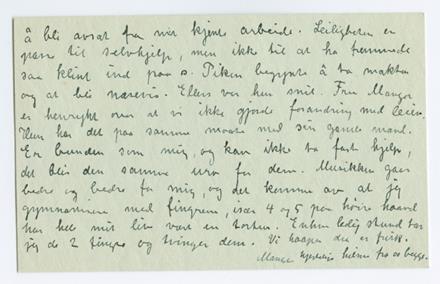 å bli avsat fra mit kjente arbeide. Leiligheten er
pæn til selvhjelp, men ikke til at ha fremmede
saa klint ind paa os. Piken begynte å ta makten
og at bli nærevis. Ellers var hun snil. Fru Mangor
er henrykt over at vi ikke gjorde forandring med leien.
Hun har det paa samme maate med sin gamle mand.
Er bunden som mig, og kan ikke ta fast hjelp,
det blir den samme uro for dem. Musikken gaar
bedre og bedre for mig, og det kommer av at jeg
gymnastiserer med fingrene, især 4 og 5 paa høire haand
har hele mit liv vært en tortur. Enhver ledig stund tar
jeg de 2 fingre og tvinger dem. Vi haaper du er frisk.
Mange hjertelig hilsen fra os begge.